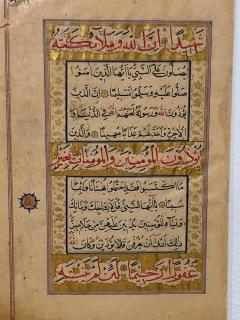 شهيدا ان الله وملائكته
يصلون على النبي يا ايها الذين امنوا
صلوا عليه وسلموا تسليما ان الذين
يؤذون الله ورسوله لعنهم الله في الدنيا و
الاخرة واعد لهم عذابا مهينا والذين
يؤذون المؤمنين والمؤمنات بغير
ما اكتسبوا فقد احتملوا بهتانا واثما
مبينا يا ايها النبي قل لازواجك وبناتك
ونساء المؤمنين يدنين عليهن من جلابيبهن
ذلك ادنى ان يعرفن فلا يؤذين وكان الله
غفورا رحيما لئن لم ينته